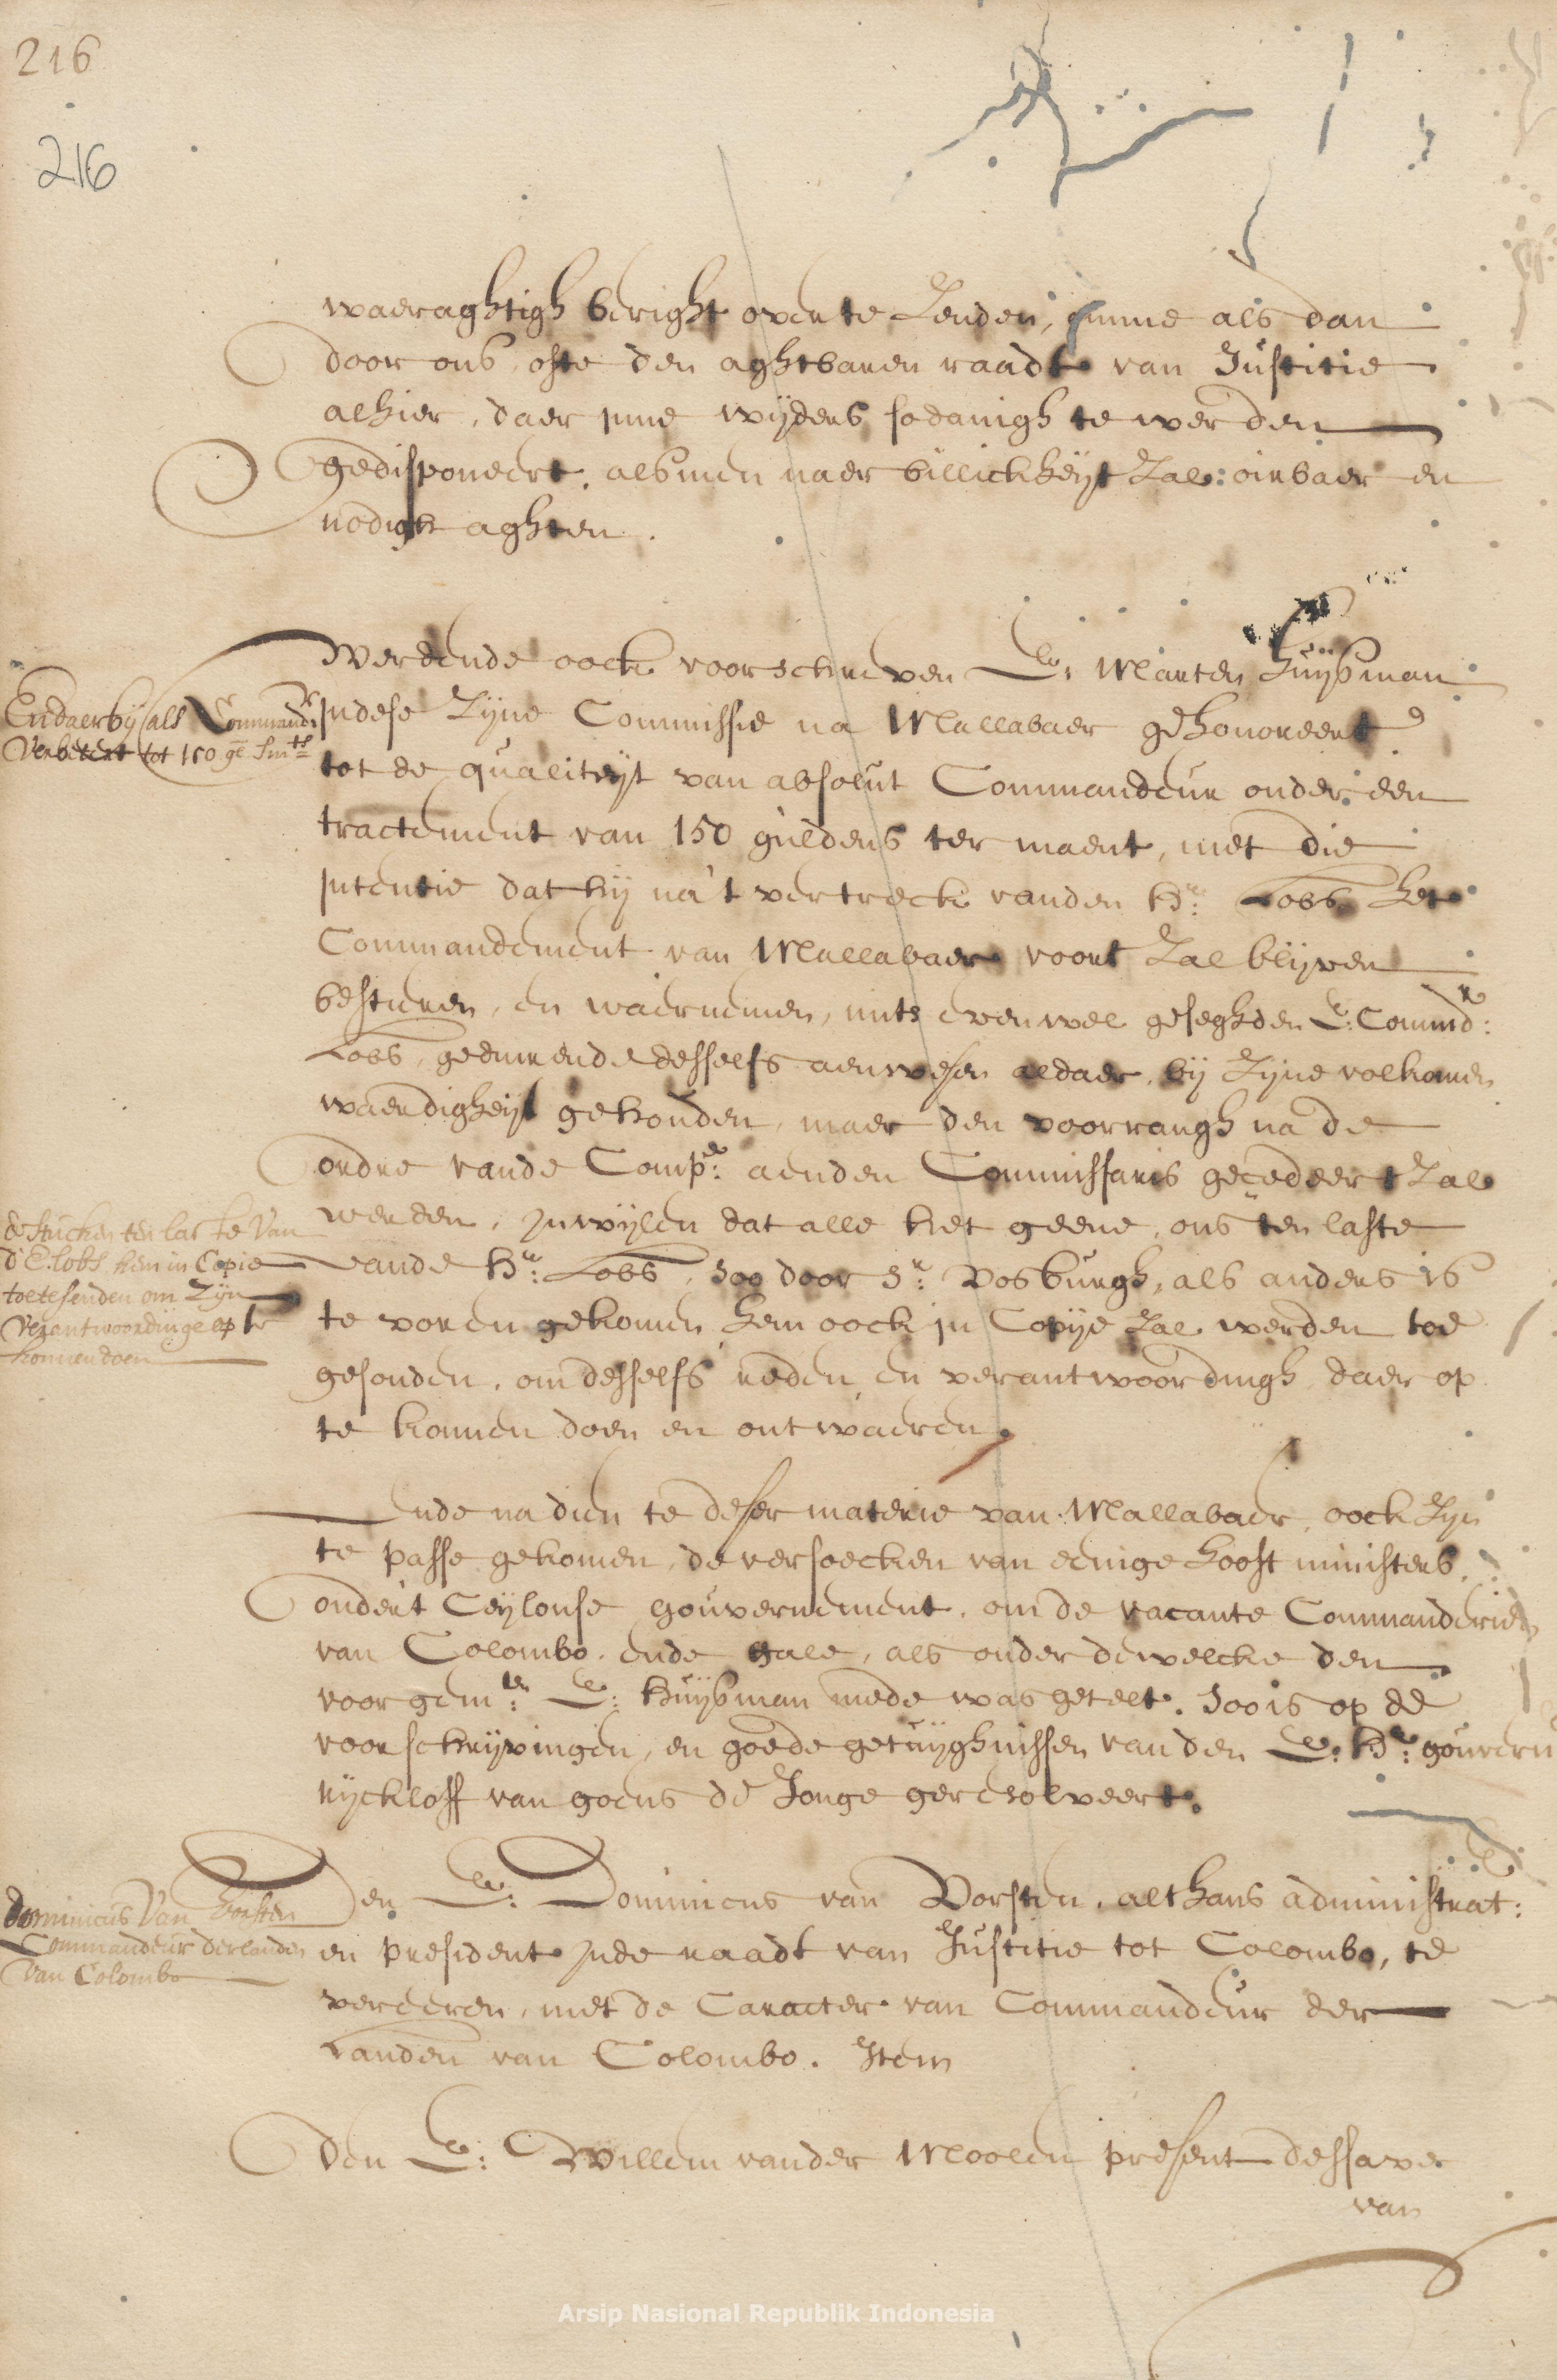 216
216
waeraghtigh beright over te senden, omme als dan
door ons, ofte den aghtbaren raadt van Justitie
alhier, daer inne wijders sodanigh te werden
gedisponeert, als men naer billickheijt sal: oirbaer en
nodigh aghten.
Werdende oock voorschreven E: Marten Huijsman
Endaerbij als Command:r
Verbetert tot 150 gl. 'smts
in dese zijne Commissie na Mallabaer gehonoreert
tot de qualiteijt van absolut Commandeur onder een
tractement van 150 guldens ter maent, met die
intentie dat hij na't vertreck vanden Hr: Lobs het
Commandement van Mallabaer voort sal blijven
bestieren, en waernemen, mits evenwel geseghden E: Commdr:
Lobs, geduurende desselfs aenwesen aldaer, bij zijne volkomen
waerdigheijt gehouden, maer den voorrangh na de
ordre vande Compe: aenden Commissaris gecedeert sal
werden, inwijlen dat alle het geene, ons ten laste
de stucken ten laste van
d'E: lobs hem in Copie
toe te senden om zijn
Verantwoordinge op te
konnen doen
vande Hr: Lobs, soo door Sr: Vosburgh, als anders is
te voren gekomen hem oock in Copije sal werden toe
gesonden, om desselfs reden en verantwoordingh daer op
te konnen doen en ontwaeren.
Ende nadien te deser materie van Mallabaer, oock zijn
te passe gekomen, de versoecken van eenige hooft ministers,
onder't Ceijlonse gouvernement, om de vacante Commanderien
van Colombo, ende gale, als onder dewelcke den
voorgemten: E: Huijsman mede was getelt. Soo is op de
voorschrijvingen, en goede getuijghnissen van den E: Hr: gouvern
rijckloff van goens de Jonge geresolveert.
Den E: Dominicus van Vorsten, althans administrat:
dominicus Van Vorsten
Commandeur der landen
van Colombo
en president inde raadt van Justitie tot Colombo, te
vereeren, met de Caracter van Commandeur der
Landen van Colombo. Item
Den E: Willem vander Moolen present dessave
van
Arsip Nasional Republik Indonesia